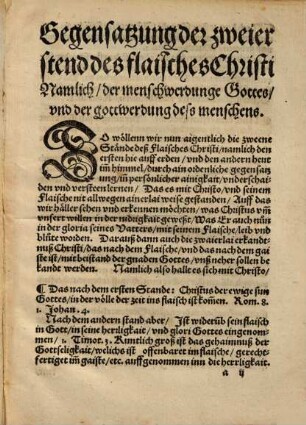 Gegensatzung der zweier
stend des flaisches Christi
Namlich / der menschwerdunge Gottes /
vnd der gottwerdung dess menschens.
SO wöllenn wir nun aigentlich die zweene
Stände deß Flaisches Christi / namlich den
ersten hie auff erden / vnd den andern heut
im himmel / durch ain ordenliche gegensatz
ung / in persönlicher ainigkait / vnderschai
den vnd versteen lernen / Das es mit Christo / vnd seinem
Flaische nit allwegen ainerlai weise gestanden / Auff das
wir häller sehen vnd erkennen möchten / was Christus vm
vnsert willen in der nidrigkait gewest / Was Er auch nun
in der gloria seines Vatters / mit seinem Flaische / leib vnd
blüte worden. Darauß dann auch die zwaierlai erkandt-
nuß Christi / das nach dem Flaische / vnd das nach dem gai
ste ist / mit beistand der gnaden Gottes / vnß neher sollen be
kande werden. Namlich also halt es sich mit Christo /
¶ Das nach dem ersten Stande: Christus der ewige sun
Gottes / in der völle der zeit ins flaisch ist komen. Rom. 8.
1. Johan. 4.
Nach dem andern stand aber / Ist widerüb sein flaisch
in Gott / in seine herligkait / vnd glori Gottes eingenom
men / 1. Timot. 3. Kuntlich groß ist das gehaimnuß der
Gottseligkait / welichs ist offenbaret im flaische / gerecht-
fertiget im gaiste / etc. auffgenommen inn die herligkait.
a ij